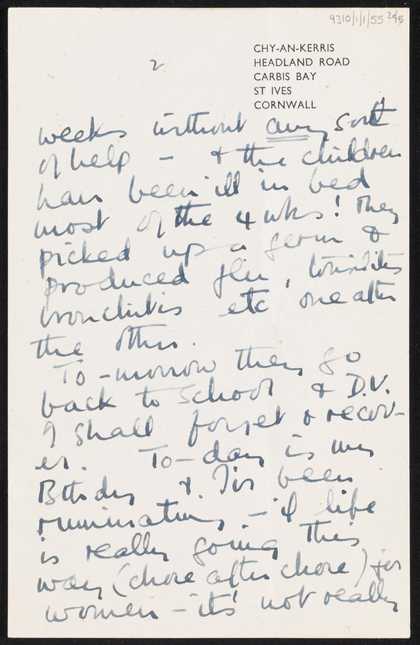 9310/1/1/55 2/5
2
CHY-AN-KERRIS
HEADLAND ROAD
CARBIS BAY
ST IVES
CORNWALL
weeks without any sort
of help – & the children
have been ill in bed
most of the 4 wks! They
picked up a germ &
produced flu, tonsilitis
bronchitis etc one after
the other.
To-morrow they go
back to school & D.V.
I shall forget & recov-
er. To-day is my
Bthday & I've been
ruminating – if life
is really going this
way (chore after chore) for
women – it's not really